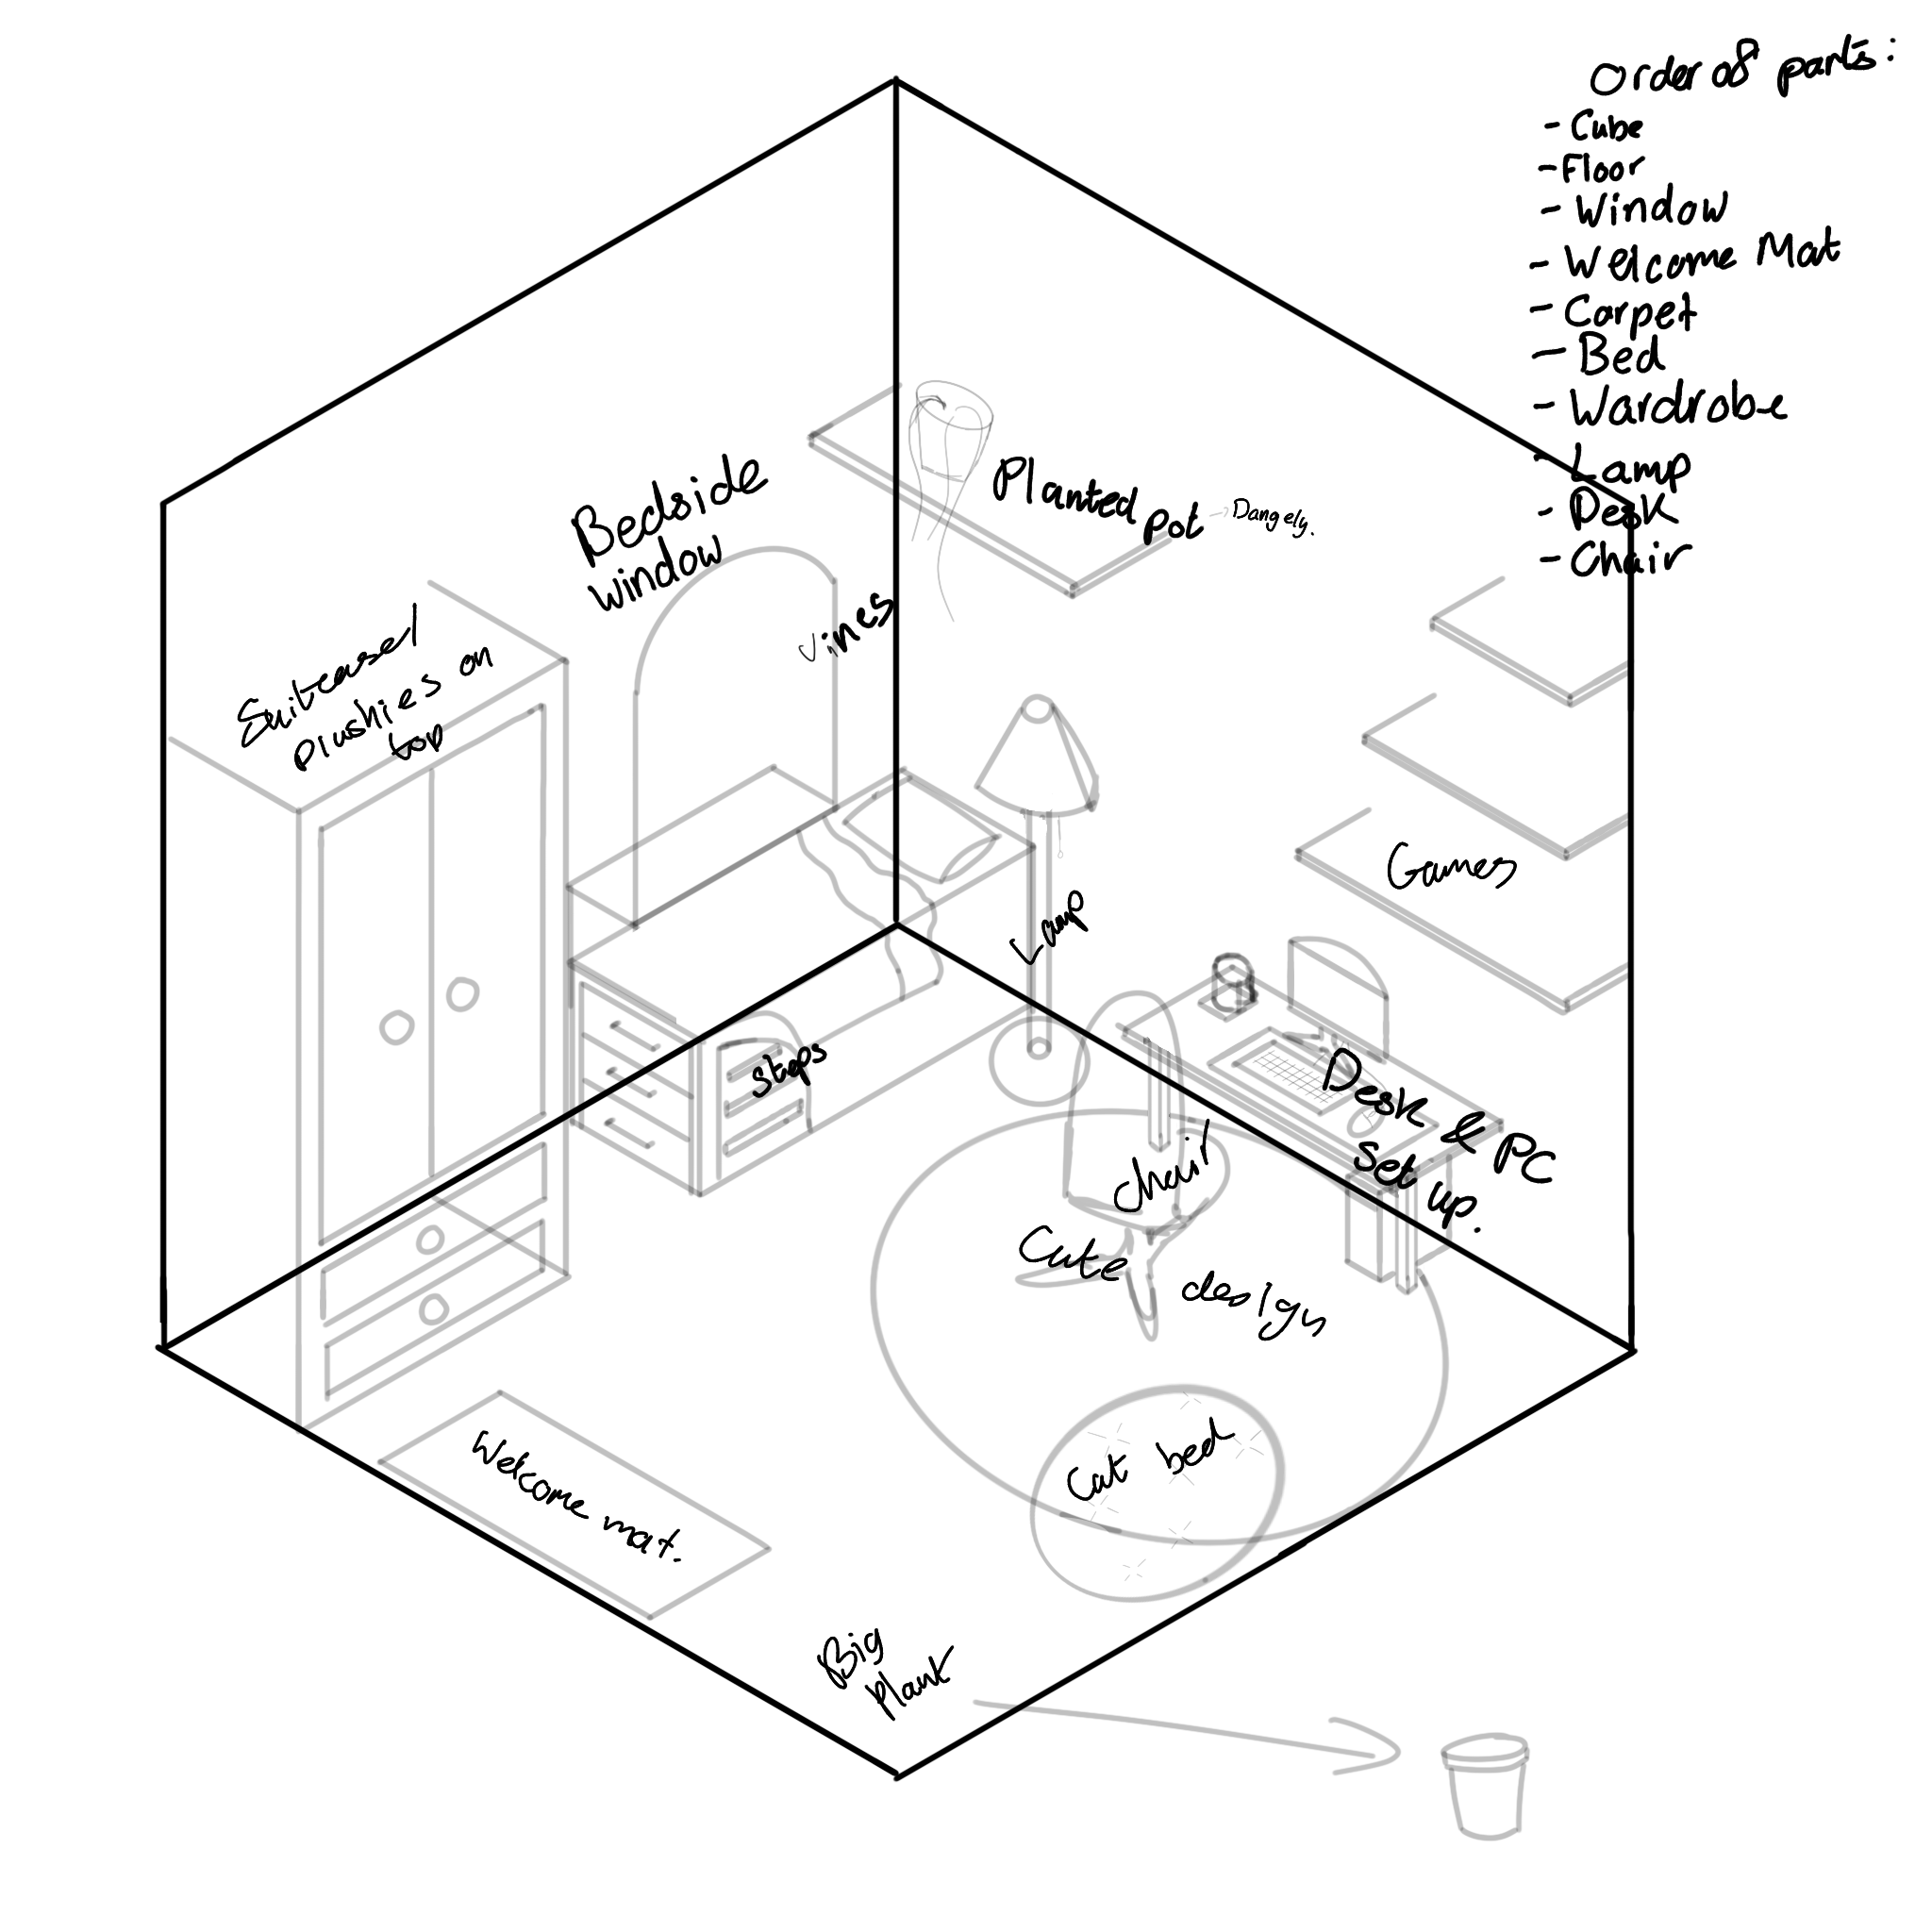 Order of parts:
- Cube
- Floor
- Window
- Welcome Mat
- Carpet
- Bed
- Wardrobe
- Lamp
- Desk
- Chair
Planted pot → Dangely.
Bedside
window
Vines
Suitcase/
plushies on
top
Games
Lamp
Steps
Desk & PC
set up.
Chair
Cute design
Cat bed
Welcome mat.
Big
Plant